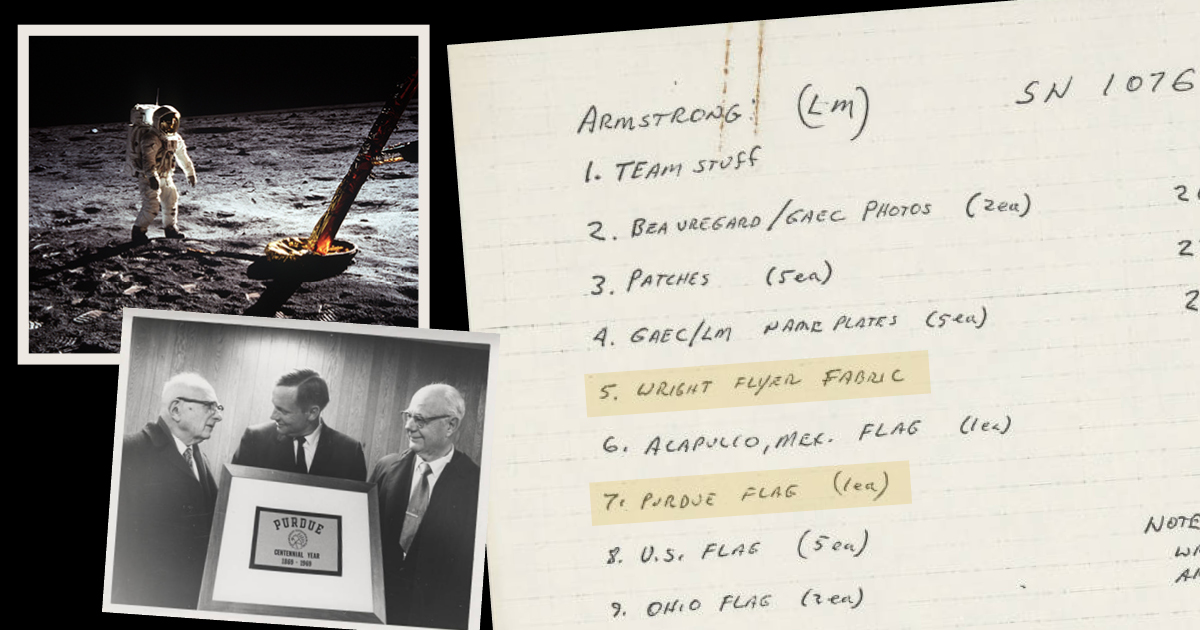 PURDUE
CENTENNIAL YEAR
1869 - 1969
ARMSTRONG: (LM) SN 1076
1. TEAM STUFF
2. BEAUREGARD/GAEC PHOTOS (2ea)
3. PATCHES (5ea)
4. GAEC/LM NAME PLATES (5ea)
5. WRIGHT FLYER FABRIC
6. ACAPULCO, MEX. FLAG (1ea)
7. PURDUE FLAG (1ea)
8. U.S. FLAG (5ea)
NOTE
9. OHIO FLAG (2ea)